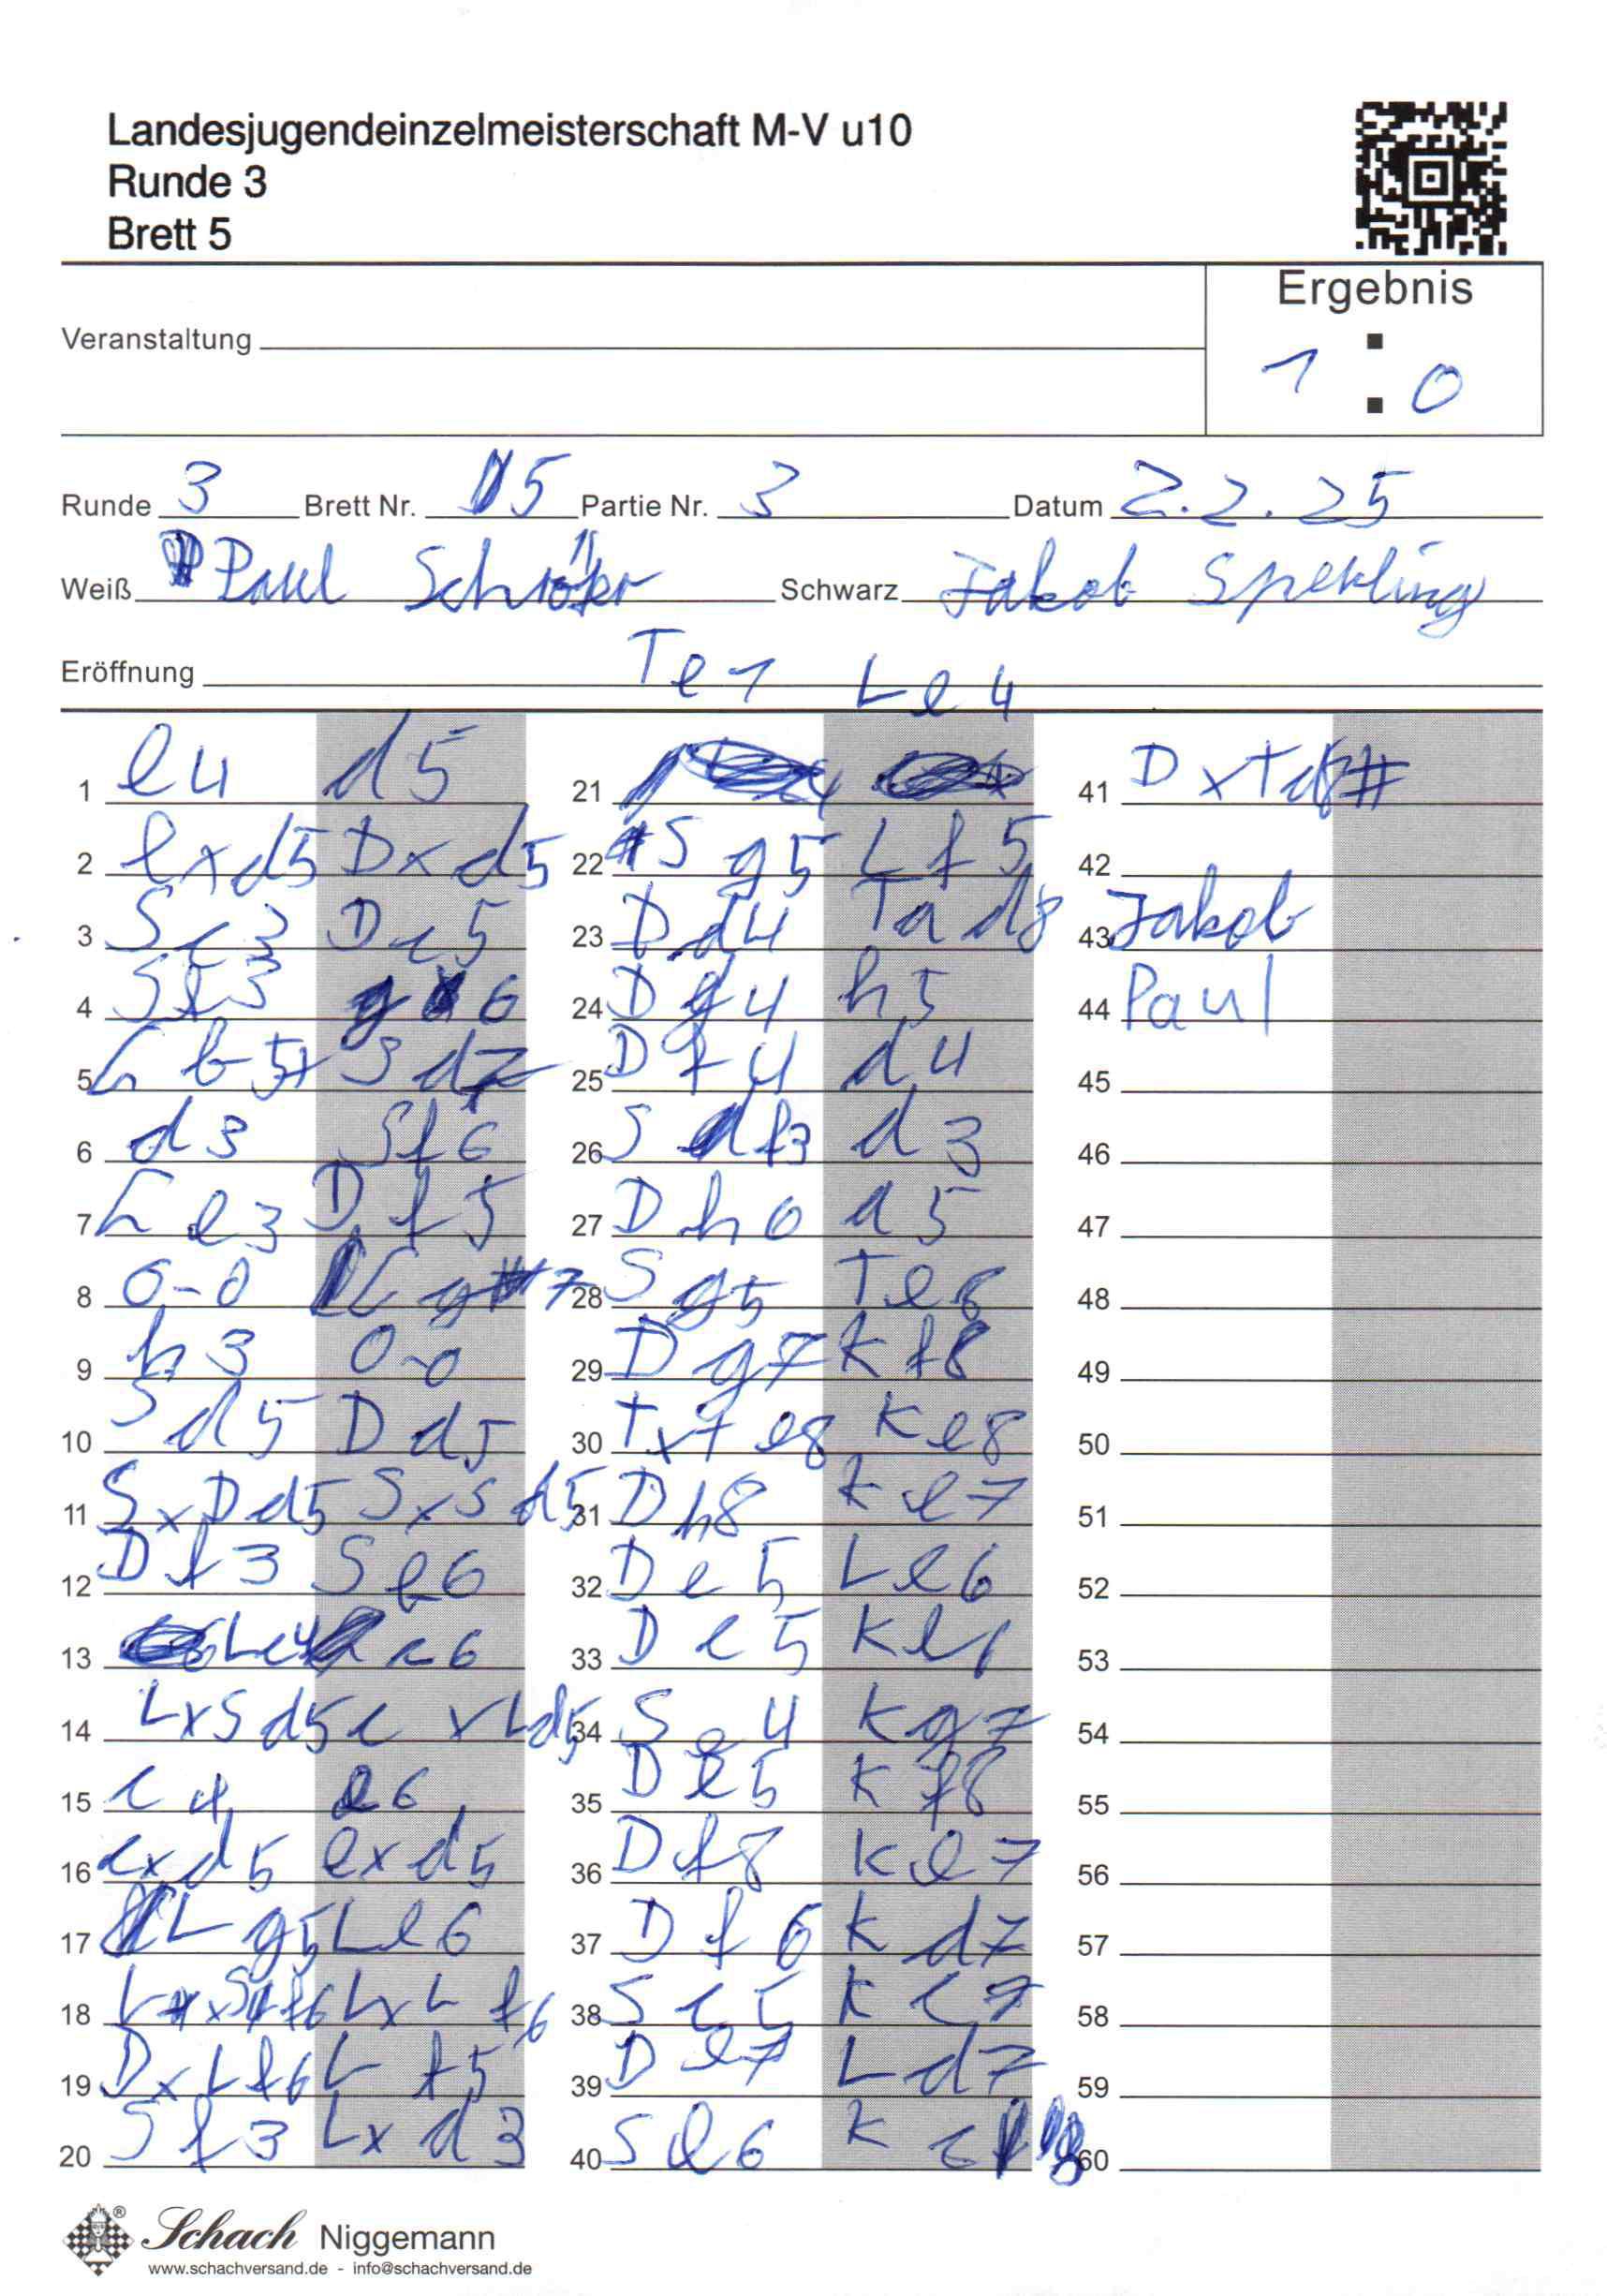 Landesjugendeinzelmeisterschaft M-V u10
Runde 3
Brett 5
Ergebnis
1 : 0
Veranstaltung
Runde 3 Brett Nr. 5 Partie Nr. 3 Datum 2.2.25
Weiß Paul Schwarz Jakob
Eröffnung
Te1 Le4
1 e4 d5
2 exd5 Dxd5
3 Sc3 Dc5
4 Sf3 g6
5 Lb5+ Sd7
6 d3 Sf6
7 Le3 Df5
8 0-0 Lg7
9 h3 0-0
10 Sd5 Dd5
11 SxDd5 SxSd5
12 Df3 Se6
13 Lc4 c6
14 LxSd5 cxLd5
15 c4 e6
16 cxd5 exd5
17 Lg5 Le6
18 LxSf6 LxLf6
19 DxLf6 Lf5
20 Sf3 Lxd3
21
22 Sg5 Lf5
23 Dd4 Tad8
24 Df4 h5
25 Df4 d4
26 Sf3 d3
27 Dh6 a5
28 Sg5 Te8
29 Dg7 Kf8
30 TxTe8 Ke8
31 Dh8 Ke7
32 De5 Le6
33 De5
34 Se4 Kg7
35 De5 Kf8
36 Df8 Ke7
37 Df6 Kd7
38 Sc5 Kc7
39 De7 Ld7
40 Se6 Kc8
41 DxTd8#
42
43 Jakob
44 Paul
45
46
47
48
49
50
51
52
53
54
55
56
57
58
59
60
Schach Niggemann
www.schachversand.de - info@schachversand.de